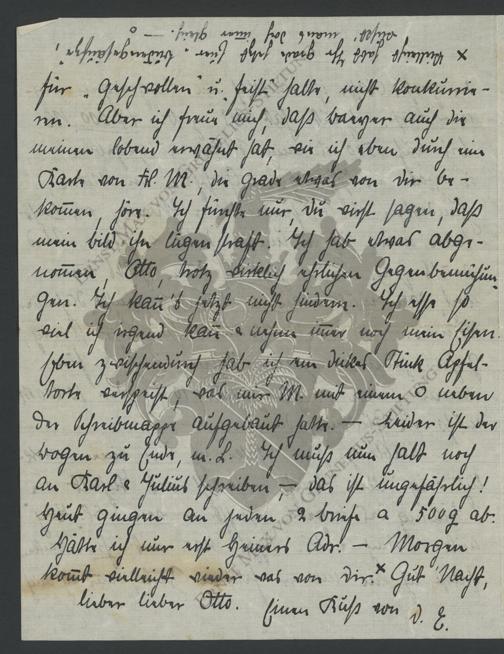 × Vielleicht hast Du grade jetzt hier
für „Geschwollen" u. feist halte, nicht konkurrie-
ren. Aber ich freue mich, daß Waeger auch die
meinen lobend erwähnt hat, wie ich eben durch eine
Karte von Fr. M., die grade etwas von dir be-
kom̄en, höre. Ich fürchte nur, Du wirst sagen, daß
mein Bild ihn Lügen straft. Ich hab etwas abge-
nom̄en, Otto, trotz wirklich ehrlichen Gegenbemühun-
gen. Ich kan̄'s jetzt nicht hindern. Ich esse so
viel ich irgend kan̄ & nehm im̄er noch mein Eisen.
Eben zwischendurch hab ich ein dickes Stück Apfel-
torte verspeist, was mir M. mit einem O neben
der Schreibmappe aufgebaut hatte. – Leider ist der
Bogen zu Ende, m. L. Ich muß nun halt noch
an Karl & Julius schreiben – das ist ungefährlich!
Heut gingen an jeden 2 Briefe a 500g ab.
Hätte ich nur erst Heiners Adr. – Morgen
kom̄t vielleicht wieder was von dir.× Gut Nacht,
lieber lieber Otto. Einen Kuß von d. E.